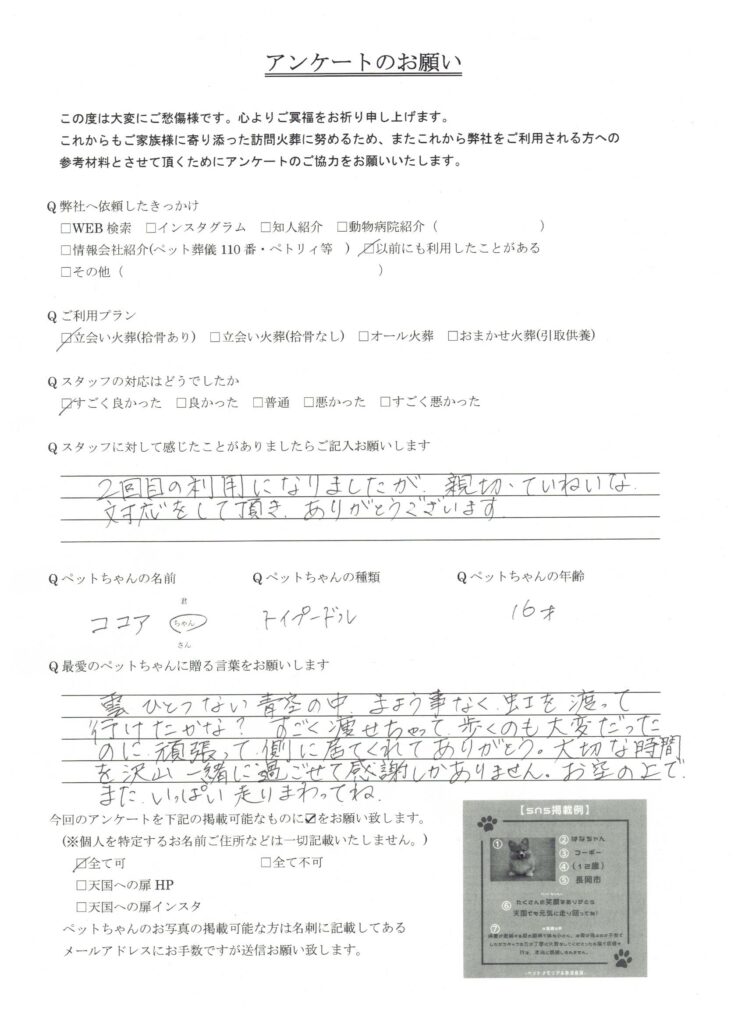 アンケートのお願い
この度は大変にご愁傷様です。心よりご冥福をお祈り申し上げます。
これからもご家族様に寄り添った訪問火葬に努めるため、またこれから弊社をご利用される方への
参考材料とさせて頂くためにアンケートのご協力をお願いいたします。
Q 弊社へ依頼したきっかけ
□WEB 検索 □インスタグラム □知人紹介 □動物病院紹介（ ）
□情報会社紹介(ペット葬儀 110 番・ペトリィ等 ) ☑以前にも利用したことがある
□その他（ ）
Q ご利用プラン
☑立会い火葬(拾骨あり) □立会い火葬(拾骨なし) □オール火葬 □おまかせ火葬(引取供養)
Q スタッフの対応はどうでしたか
☑すごく良かった □良かった □普通 □悪かった □すごく悪かった
Q スタッフに対して感じたことがありましたらご記入お願いします
2回目の利用になりましたが、親切、ていねいな
対応をして頂き、ありがとうございます。
Q ペットちゃんの名前 Q ペットちゃんの種類 Q ペットちゃんの年齢
君
ココア ちゃん トイプードル 16才
さん
Q 最愛のペットちゃんに贈る言葉をお願いします
雲ひとつない青空の中、まよう事なく、虹を渡って
行けたかな？ すごく痩せちゃって、歩くのも大変だった
のに、頑張って、側に居てくれてありがとう。大切な時間
を沢山一緒に過ごせて感謝しかありません。お空の上で
また、いっぱい走りまわってね。
今回のアンケートを下記の掲載可能なものに☑をお願い致します。
(※個人を特定するお名前ご住所などは一切記載いたしません。)
☑全て可 □全て不可
□天国への扉 HP
□天国への扉インスタ
ペットちゃんのお写真の掲載可能な方は名刺に記載してある
メールアドレスにお手数ですが送信お願い致します。
【sns掲載例】
① ② はなちゃん
③ コーギー
④ （12歳）
⑤ 長岡市
⑥ たくさんの笑顔をありがとう
天国でも元気に走り回ってね！
⑦